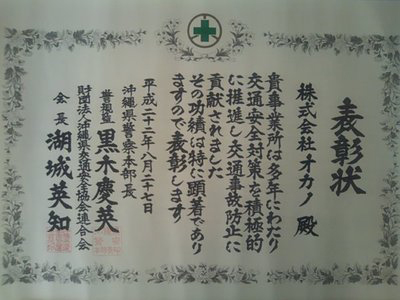 表彰状
株式会社オカノ 殿
貴事業所は多年にわたり
交通安全対策を積極的
に推進し交通事故防止に
貢献されました
その功績は特に顕著であり
ますので表彰します
平成二十二年八月二十七日
沖縄県警察本部長
警視監 黒木慶英
財団法人沖縄県交通安全協会連合会
会長 湖城英知